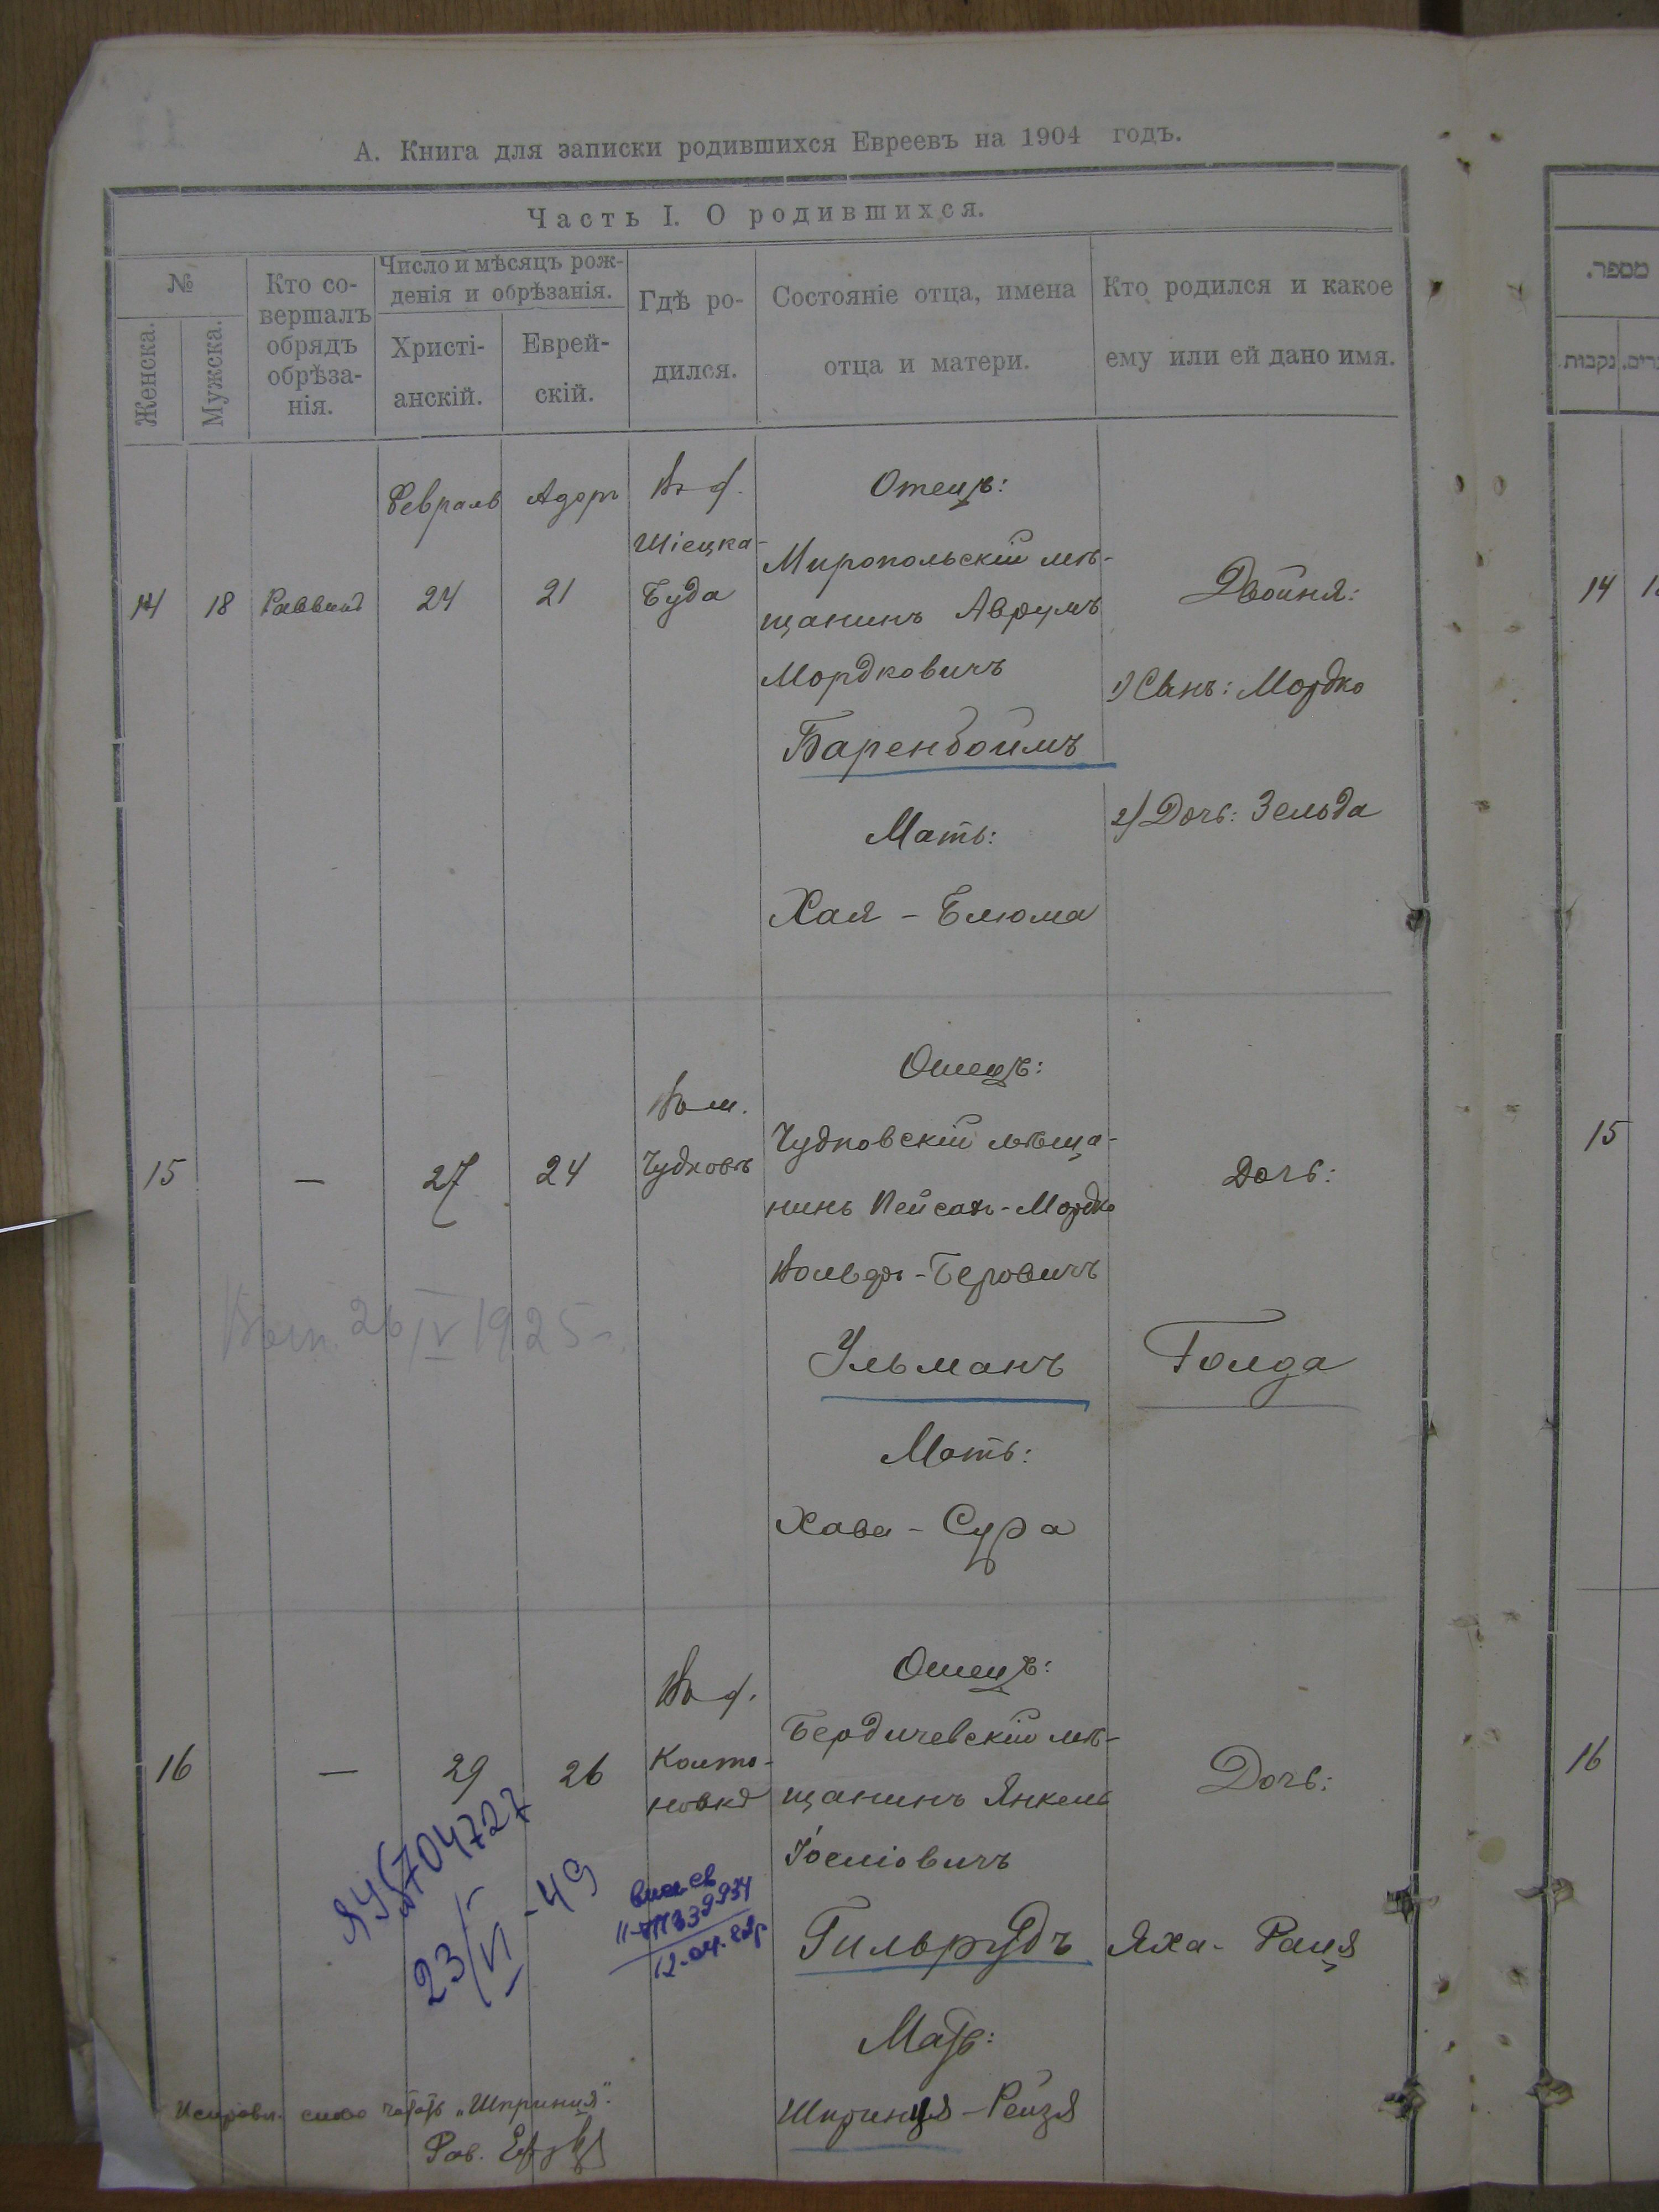 А. Книга для записки родившихся Евреевъ на 1904 годъ.
Часть I. О родившихся.
№
Женска.
Мужска.
Кто со-
вершалъ
обрядъ
обрѣза-
нія.
Число и мѣсяцъ рож-
денія и обрѣзанія.
Христі-
анскій.
Еврей-
скій.
Гдѣ ро-
дился.
Состояніе отца, имена
отца и матери.
Кто родился и какое
ему или ей дано имя.
מספר.
נקבות.
14
18
Раввинъ
Февраль
24
Адаръ
21
Шіецка-
Буда
Отецъ:
Миропольскій мѣ-
щанинъ Аврумъ
Мордковичъ
Баренбоймъ
Мать:
Хая - Блюма
Двойня:
1) Сынъ: Мордко
2) Дочь: Зельда
14
15
—
27
24
Въ м.
Чудновъ
Отецъ:
Чудновскій мѣща-
нинъ Пейсахъ - Мордко
Вольфъ - Беровичъ
Ульманъ
Мать:
Хава - Сура
Дочь:
Голда
26 IV 1925
15
16
—
29
26
новкѣ
Отецъ:
Бердичевскій мѣ-
щанинъ Янкель
Іосиіовичъ
Гильрудъ
Мать:
Шпринця - Рейзя
Дочь:
Яха - Раця
16
704727
23/VI - 49
12-04.
слово читать „Шпринця".
Рав.